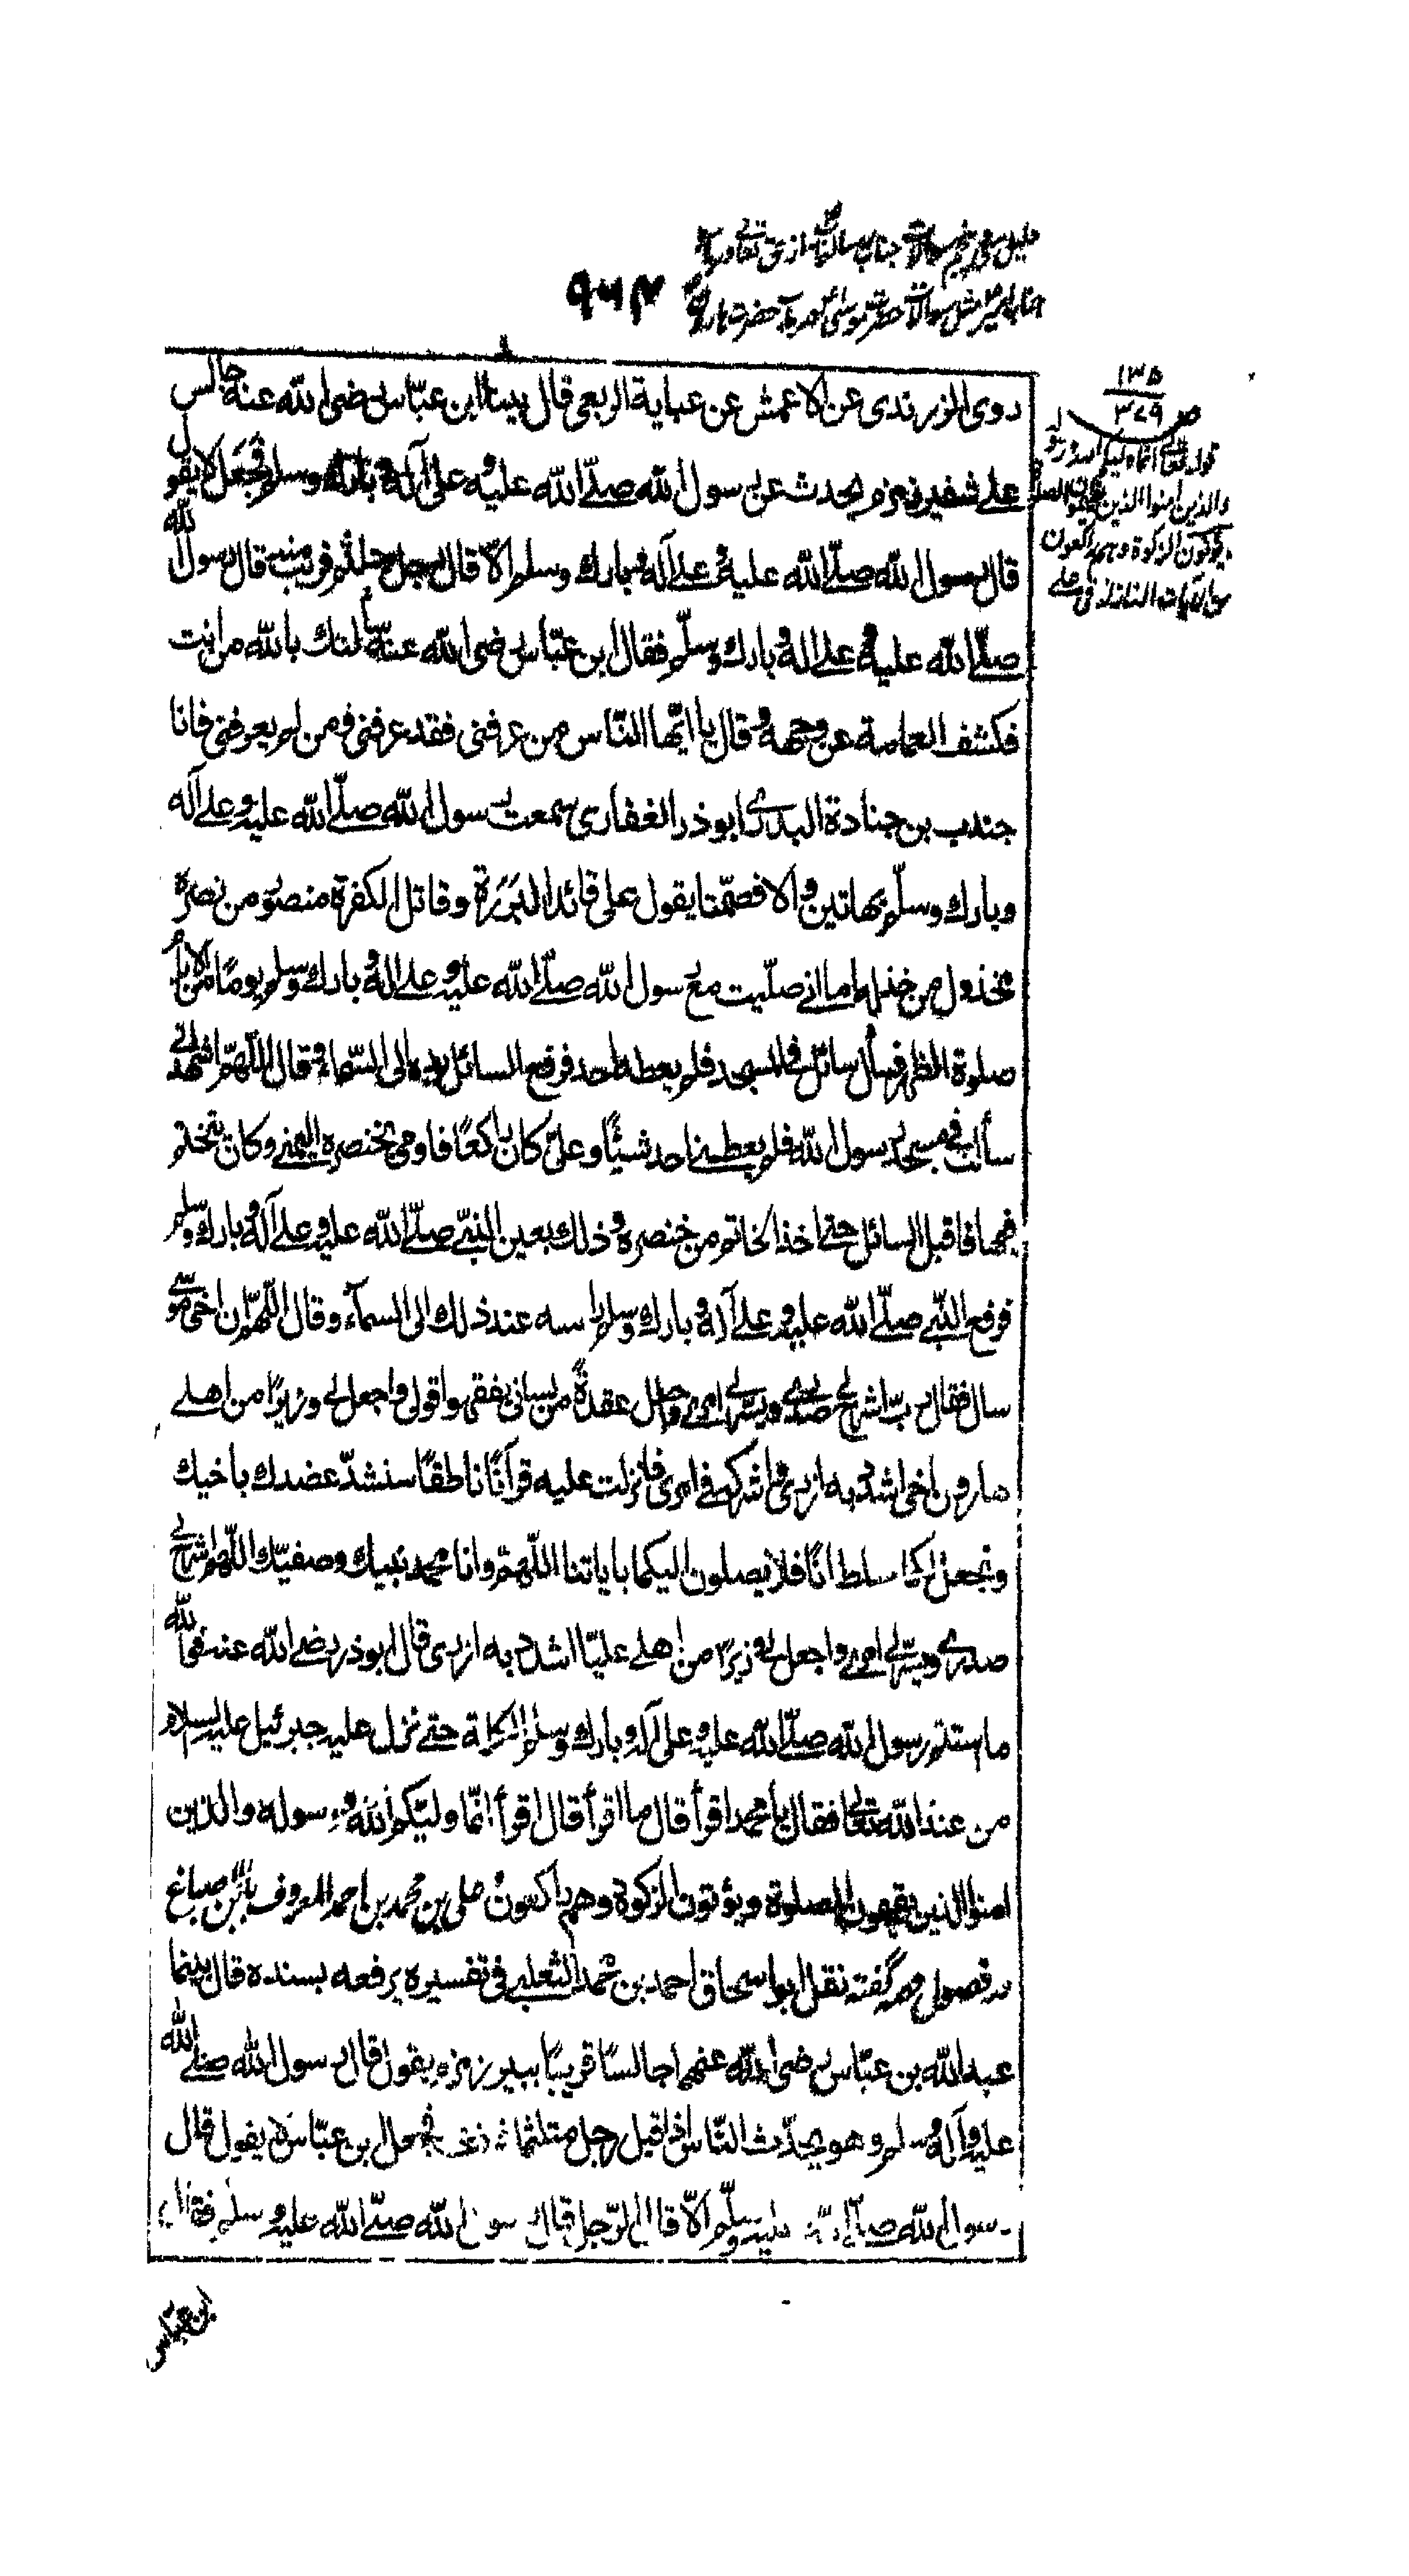 دليل سى و پنجم سوالات جناب رسالتماب از حق تعالى در باب
جناب امير مثل سوالات حضرت موسى در باب حضرت هارون
٩٦٤
١٣٥
٣٧٩
قوله تعالى انما وليكم الله ورسوله
والذين امنوا الذين يقيمون الصلوة
ويؤتون الزكوة وهم راكعون
من الآيات النازلة فى على
روى الزرندى عن الاعمش عن عباية الربعى قال بينا ابن عبّاس رضى الله عنه جالس
على شفير زمزم يحدث عن رسول الله صلّى الله عليه وعلى آله وبارك وسلم فجعل لا يقول
قال رسول الله صلّى الله عليه وعلى آله وبارك وسلم الّا قال رجل متلثم قريب منه قال رسول الله
صلّى الله عليه وعلى اله وبارك وسلّم فقال ابن عبّاس رضى الله عنه سألتك بالله من انت
فكشف العمامة عن وجهه وقال يا ايّها النّاس من عرفنى فقد عرفنى ومن لم يعرفنى فانا
جندب بن جنادة البدرى ابوذر الغفارى سمعت رسول الله صلّى الله عليه وعلى آله
وبارك وسلّم بهاتين والا فصمّتا يقول على قائد البررة وقاتل الكفرة منصور من نصره
مخذول من خذله اما انى صلّيت مع رسول الله صلّى الله عليه وعلى اله وبارك وسلم يوما من الايام
صلوة الظهر فسأل سائل فى المسجد فلم يعطه احد فرفع السائل يده الى السّماء وقال اللّهمّ اشهد انى
سألت فى مسجد رسول الله فلم يعطنى احد شيئًا وعلىّ كان راكعًا فاومى بخنصره اليمنى وكان يتختم
فيها فاقبل السائل حتى اخذ الخاتم من خنصره وذلك بعين النبى صلّى الله عليه وعلى آله وبارك وسلم
فرفع النّبى صلّى الله عليه وعلى آله وبارك وسلم رأسه عند ذلك الى السمآء وقال اللّهم ان اخى موسى
سال فقال ربّ اشرح لى صدرى ويسّر لى امرى واحلل عقدةً من لسانى يفقهوا قولى واجعل لى وزيرًا من اهلى
هارون اخى اشدد به ازرى واشركه فى امرى فانزلت عليه قرآنًا ناطقًا سنشدّ عضدك باخيك
ونجعل لكما سلطانًا فلا يصلون اليكما باياتنا اللّهمّ وانا محمد نبيك وصفيّك اللّهم اشرح لى
صدرى ويسّر لى امرى واجعل لى وزيرًا من اهلى عليّا اشدد به ازرى قال ابوذر رضى الله عنه فو الله
ما استتم رسول الله صلّى الله عليه وعلى آله وبارك وسلم الكلمة حتى نزل عليه جبرئيل عليه السلام
من عند الله تعالى فقال يا محمد اقرأ قال ما اقرأ قال اقرأ انّما وليّكم الله ورسوله والذين
امنوا الذين يقيمون الصلوة ويؤتون الزكوة وهم راكعون على بن محمد بن احمد المعروف بابن صباغ
در فصول مهمه گفته نقل ابو اسحاق احمد بن محمد الثعلبى فى تفسيره يرفعه بسنده قال بينما
عبد الله بن عبّاس رضى الله عنهما جالسًا قريبًا ببير زمزم يقول قال رسول الله صلى الله
عليه وآله وسلم وهو يحدّث النّاس اذ اقبل رجل متلثما فجعل ابن عبّاس يقول قال
رسول الله صلى الله عليه وسلّم الّا قال الرّجل قال رسول الله صلّى الله عليه وسلم فقال
بن عباس